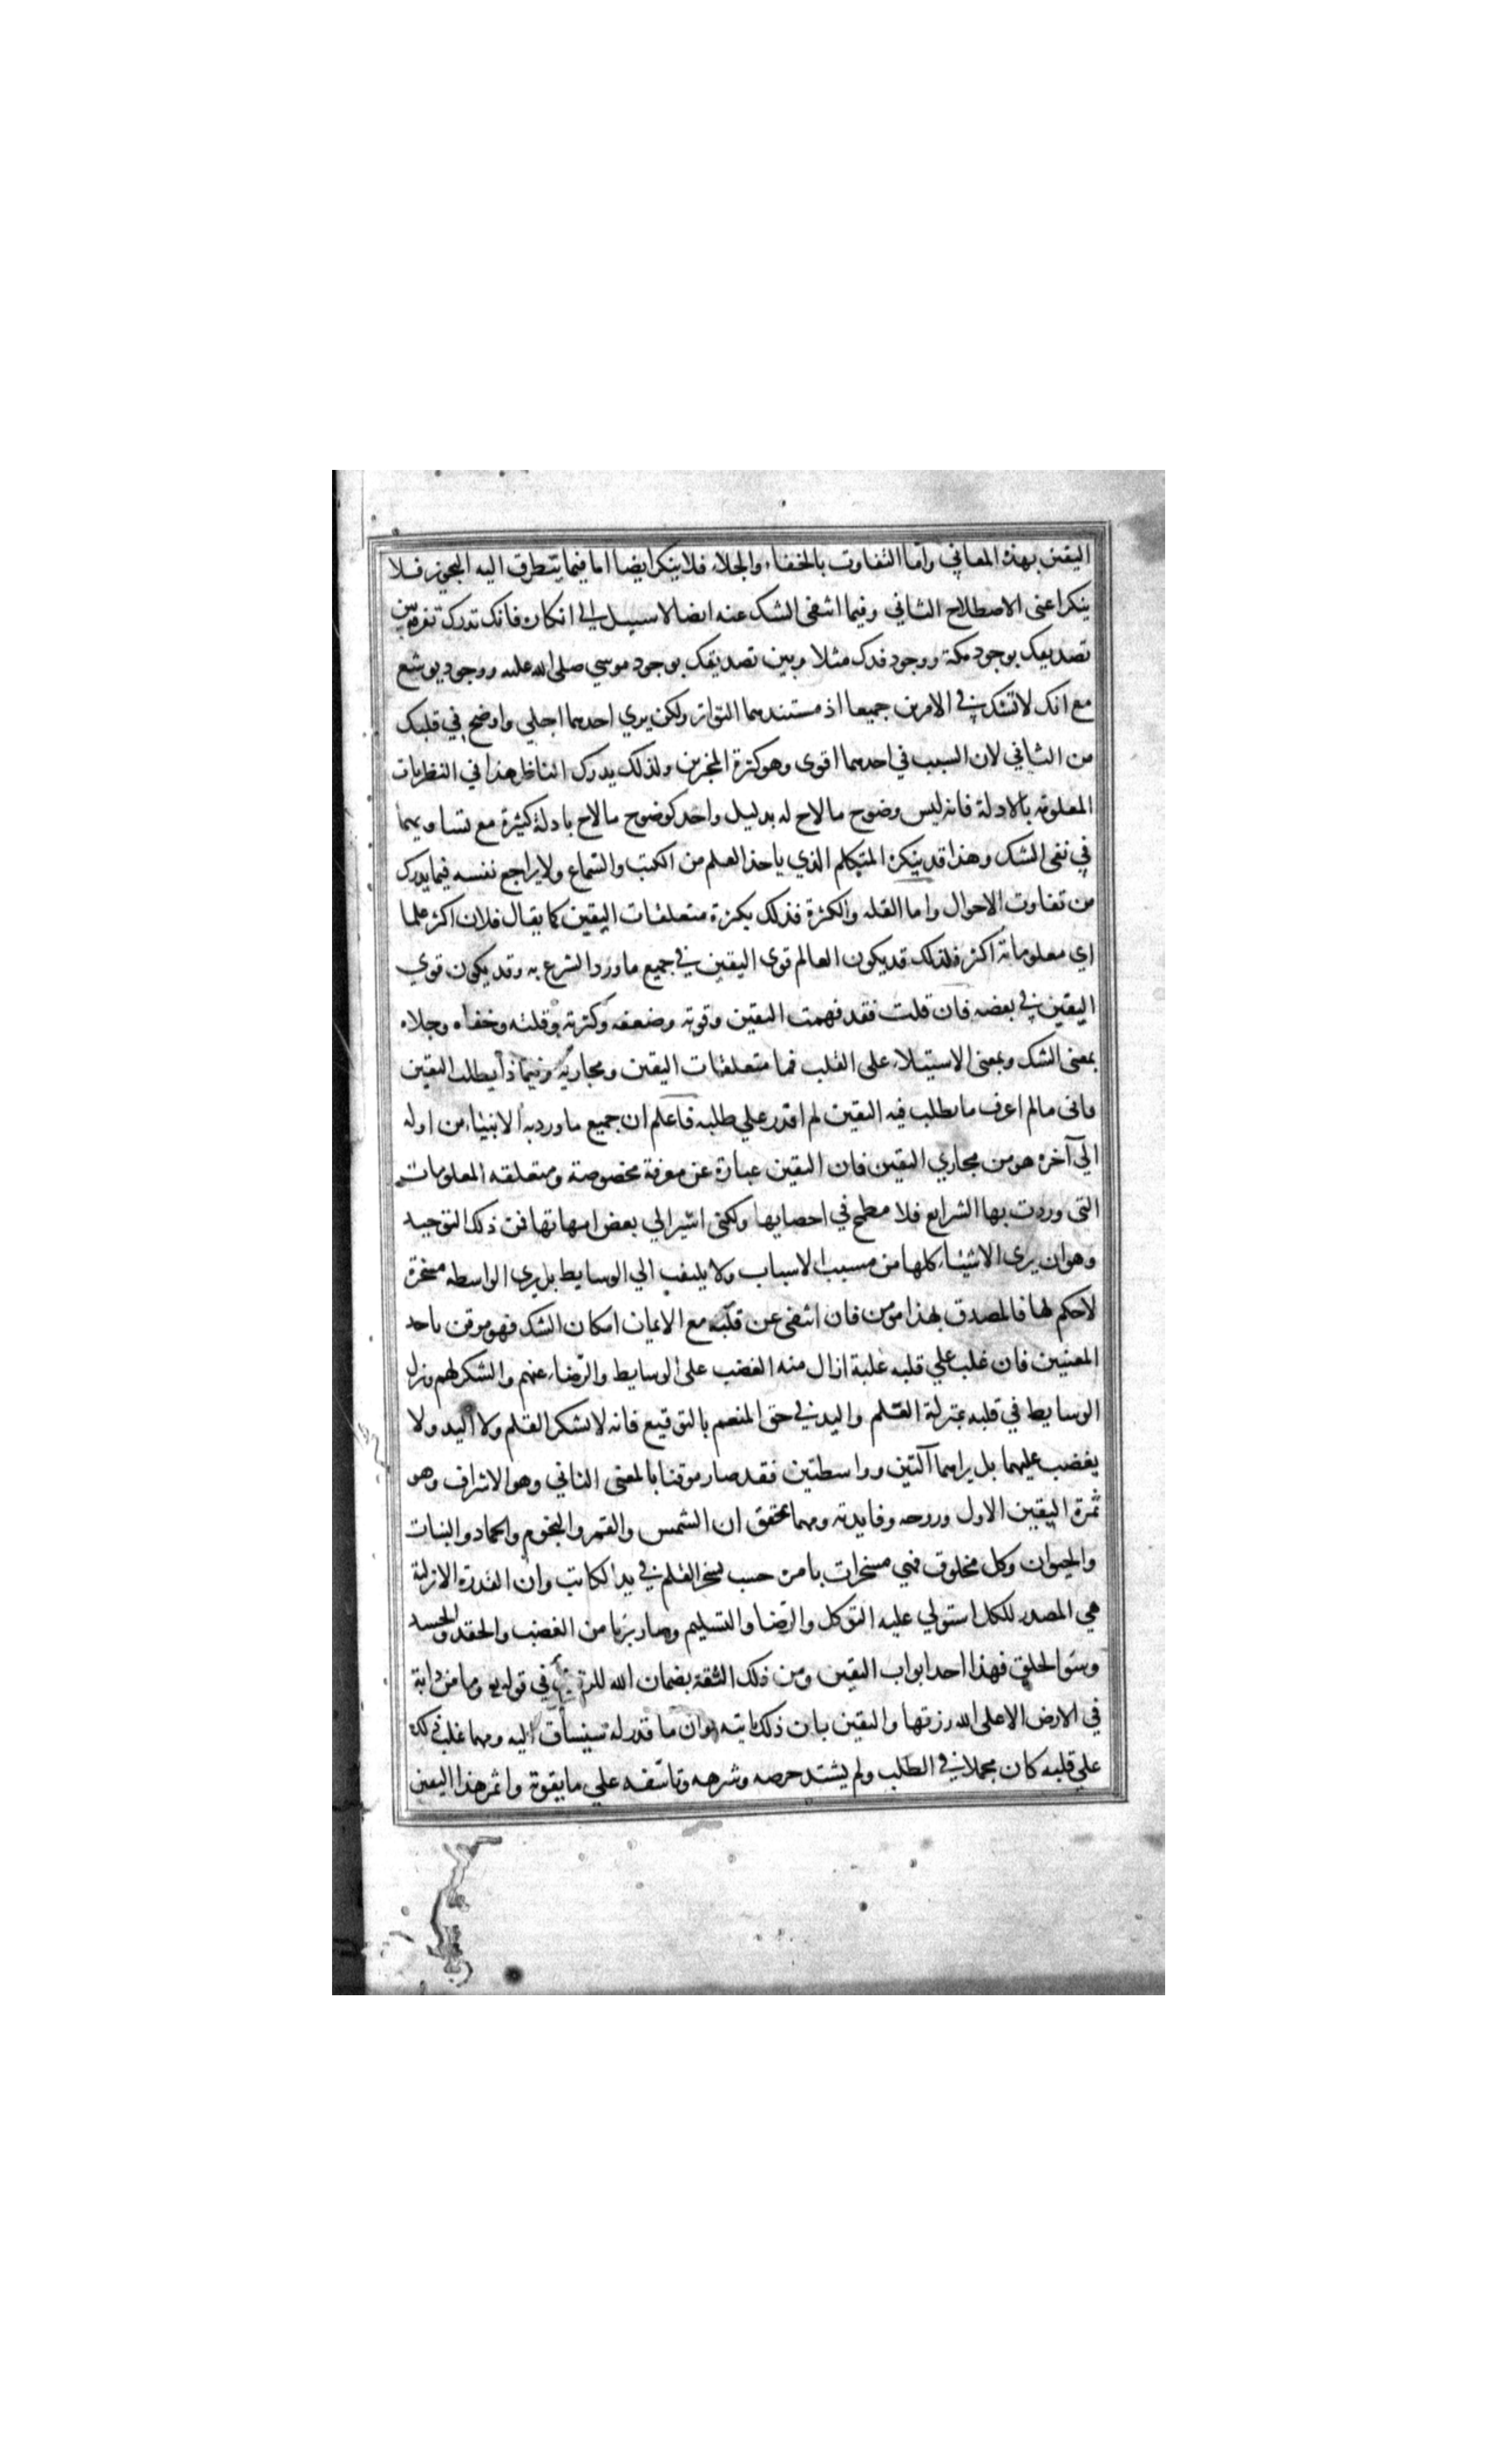 اليقين بهذه المعاني وأما التفاوت بالخفاء والجلاء فلا ينكر ايضا اما فيما يتطرق اليه التجويز فلا
ينكر اعنى الاصطلاح الثاني وفيما انتفى الشك عنه ايضا لا سبيل الى انكاره فانك تدرك تفرقة بين
تصديقك بوجود مكة ووجود فدك مثلا وبين تصديقك بوجود موسي صلى الله عليه ووجود يوشع
مع انك لا تشك في الامرين جميعا اذ مستندهما التواتر ولكن يرى احدهما اجلي واوضح في قلبك
من الثاني لان السبب في احدهما اقوى وهو كثرة المخبرين ولذلك يدرك الناظر هذا في النظريات
المعلومة بالادلة فانه ليس وضوح ما لاح له بدليل واحد كوضوح ما لاح بادلة كثيرة مع تساويهما
في نفى الشك وهذا قد ينكره المتكلم الذي ياخذ العلم من الكتب والسماع ولا يراجع نفسه فيما يدرك
من تفاوت الاحوال واما القله والكثرة فذلك بكثرة متعلقات اليقين كما يقال فلان اكثر علما
اي معلوماته اكثر فلذلك قد يكون العالم قوى اليقين في جميع ما ورد الشرع به وقد يكون قوي
اليقين في بعضه فان قلت فقد فهمت اليقين وقوته وضعفه وكثرته وقلته وخفاه وجلاه
بمعنى الشك وبمعنى الاستيلاء على القلب فما متعلقات اليقين ومجاريه وفيما ذا يطلب اليقين
فانى مالم اعرف ما يطلب فيه اليقين لم اقدر علي طلبه فاعلم ان جميع ما ورد به الانبياء من اوله
الي آخره هو من مجاري اليقين فان اليقين عبارة عن معرفة مخصوصة ومتعلقه المعلومات
التى وردت بها الشرايع فلا مطمح في احصايها ولكنى اشير الي بعض امهاتها فمن ذلك التوحيد
وهو ان يرى الاشياء كلها من مسبب الاسباب ولا يلتفت الي الوسايط بل يرى الواسطه مسخرة
لا حكم لها فالمصدق بهذا مومن فان انتفى عن قلبه مع الايمان امكان الشك فهو موقن باحد
المعنيين فان غلب علي قلبه غلبة ازال منه الغضب على الوسايط والرضاء عنهم والشكر لهم ونزل
الوسايط في قلبه بمنزلة القلم واليد في حق المنعم بالتوقيع فانه لا يشكر القلم ولا اليد ولا
يغضب عليهما بل يراهما آلتين وواسطتين فقد صار موقنا بالمعنى الثاني وهو الاشراف وهو
ثمرة اليقين الاول وروحه وفايدته ومهما تحقق ان الشمس والقمر والنجوم والجماد والنبات
والحيوان وكل مخلوق فهي مسخرات بامره حسب تسخر القلم في يد الكاتب وان القدرة الازلية
هي المصدر للكل استولي عليه التوكل والرضا والتسليم وصار بريا من الغضب والحقد والحسد
وسوء الخلق فهذا احد ابواب اليقين ومن ذلك الثقة بضمان الله للرزق في قوله وما من دابة
في الارض الا على الله رزقها واليقين بان ذلك ياتيه وان ما قدر له سينساق اليه ومهما غلب ذلك
علي قلبه كان مجملا في الطلب ولم يشتد حرصه وشرهه وتاسفه علي ما يفوته واثمر هذا اليقين